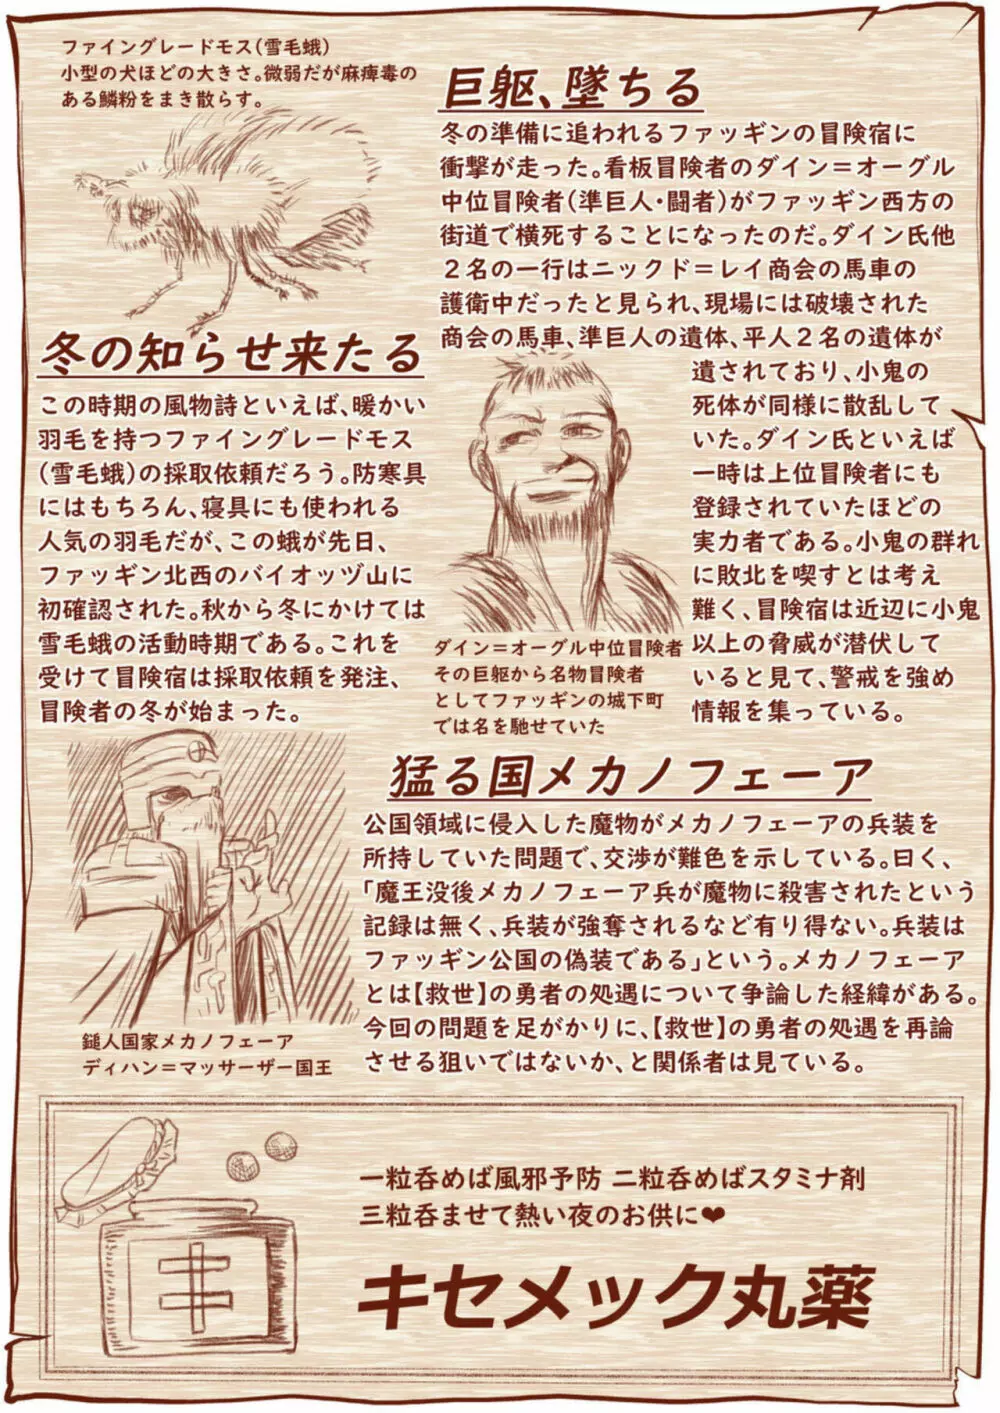 ファイングレードモス（雪毛蛾）
小型の犬ほどの大きさ。微弱だが麻痺毒の
ある鱗粉をまき散らす。
冬の知らせ来たる
この時期の風物詩といえば、暖かい
羽毛を持つファイングレードモス
（雪毛蛾）の採取依頼だろう。防寒具
にはもちろん、寝具にも使われる
人気の羽毛だが、この蛾が先日、
ファッギン北西のバイオッヅ山に
初確認された。秋から冬にかけては
雪毛蛾の活動時期である。これを
受けて冒険宿は採取依頼を発注、
冒険者の冬が始まった。
巨躯、墜ちる
冬の準備に追われるファッギンの冒険宿に
衝撃が走った。看板冒険者のダイン＝オーグル
中位冒険者（準巨人・闘者）がファッギン西方の
街道で横死することになったのだ。ダイン氏他
２名の一行はニックド＝レイ商会の馬車の
護衛中だったと見られ、現場には破壊された
商会の馬車、準巨人の遺体、平人２名の遺体が
遺されており、小鬼の
死体が同様に散乱して
いた。ダイン氏といえば
一時は上位冒険者にも
登録されていたほどの
実力者である。小鬼の群れ
に敗北を喫すとは考え
難く、冒険宿は近辺に小鬼
以上の脅威が潜伏して
いると見て、警戒を強め
情報を集っている。
ダイン＝オーグル中位冒険者
その巨躯から名物冒険者
としてファッギンの城下町
では名を馳せていた
猛る国メカノフェーア
公国領域に侵入した魔物がメカノフェーアの兵装を
所持していた問題で、交渉が難色を示している。曰く、
「魔王没後メカノフェーア兵が魔物に殺害されたという
記録は無く、兵装が強奪されるなど有り得ない。兵装は
ファッギン公国の偽装である」という。メカノフェーア
とは【救世】の勇者の処遇について争論した経緯がある。
今回の問題を足がかりに、【救世】の勇者の処遇を再論
させる狙いではないか、と関係者は見ている。
鎚人国家メカノフェーア
ディハン＝マッサーザー国王
一粒呑めば風邪予防 二粒呑めばスタミナ剤
三粒呑ませて熱い夜のお供に❤
キセメック丸薬